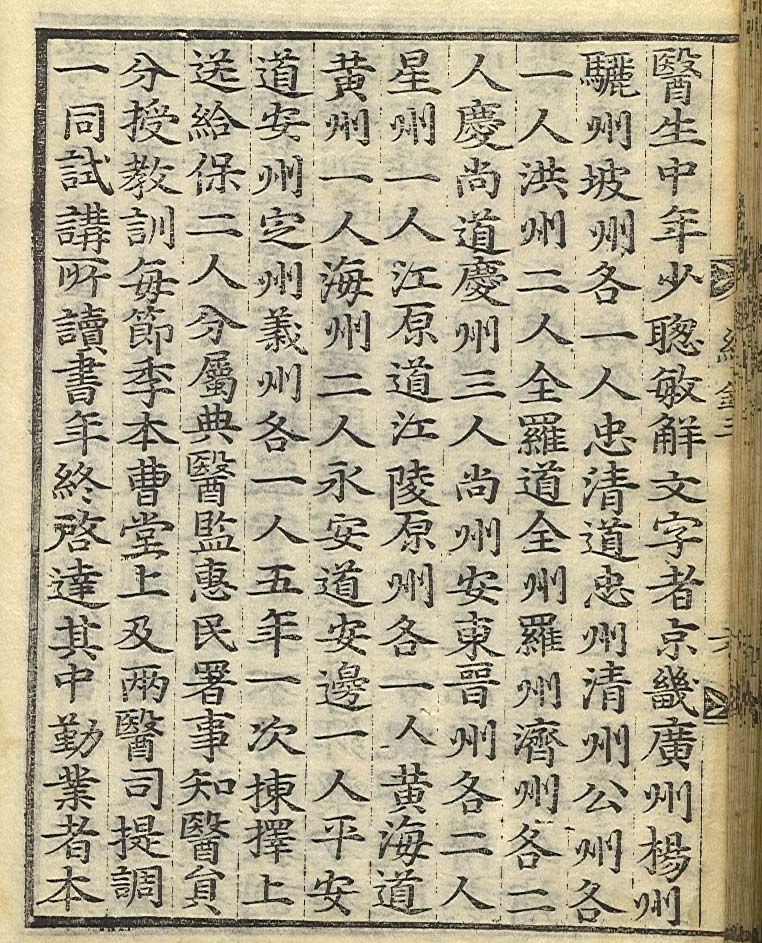 醫生中年少聰敏解文字者京畿廣州楊州
驪州坡州各一人忠淸道忠州淸州公州各
一人洪州二人全羅道全州羅州濟州各二
人慶尚道慶州三人尚州安東晋州各二人
星州一人江原道江陵原州各一人黃海道
黃州一人海州二人永安道安邊一人平安
道安州定州義州各一人五年一次揀擇上
送給保二人分屬典醫監惠民署事知醫貟
分授教訓每節季本曹堂上及兩醫司提調
一同試講所讀書年終啓達其中勤業者本